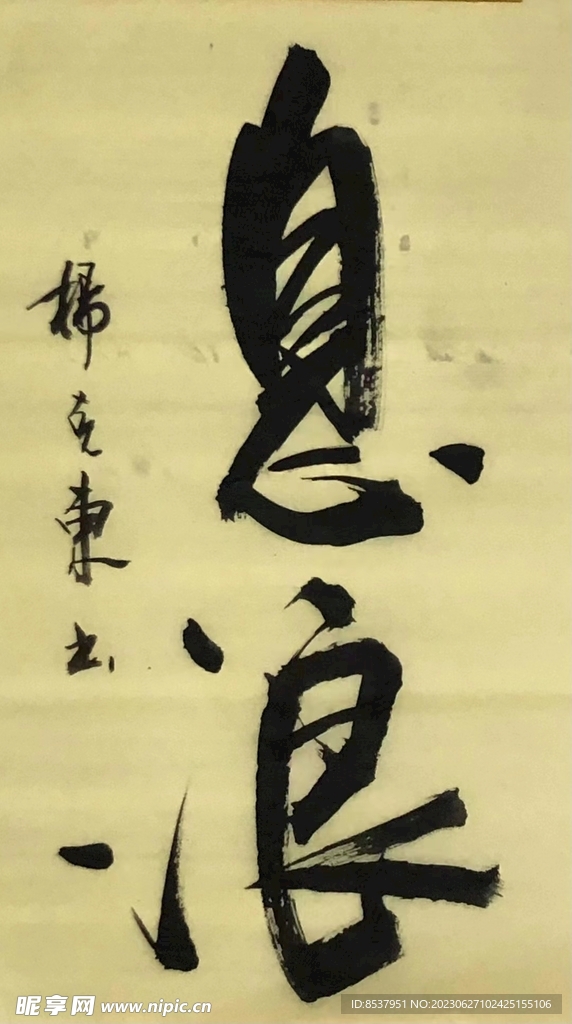 息浪
楊克東书
昵享网 www.nipic.cn
ID:8537951 NO:20230627102425155106